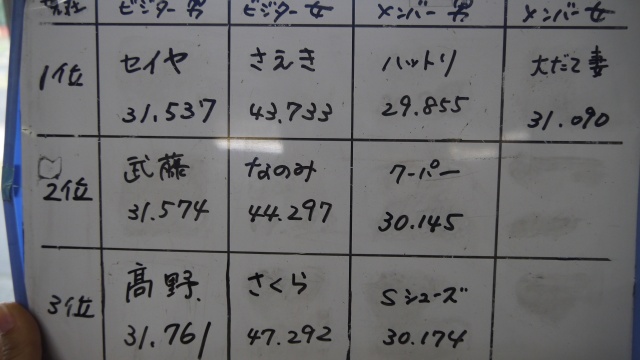 ビジター 男 ビジター 女 メンバー 男 メンバー 女
1位 セイヤ さえき ハットリ 大だこ妻
31.537 43.733 29.855 31.090
2位 武藤 なのみ クーパー
31.574 44.297 30.145
3位 高野 さくら Sシューズ
31.761 47.292 30.174